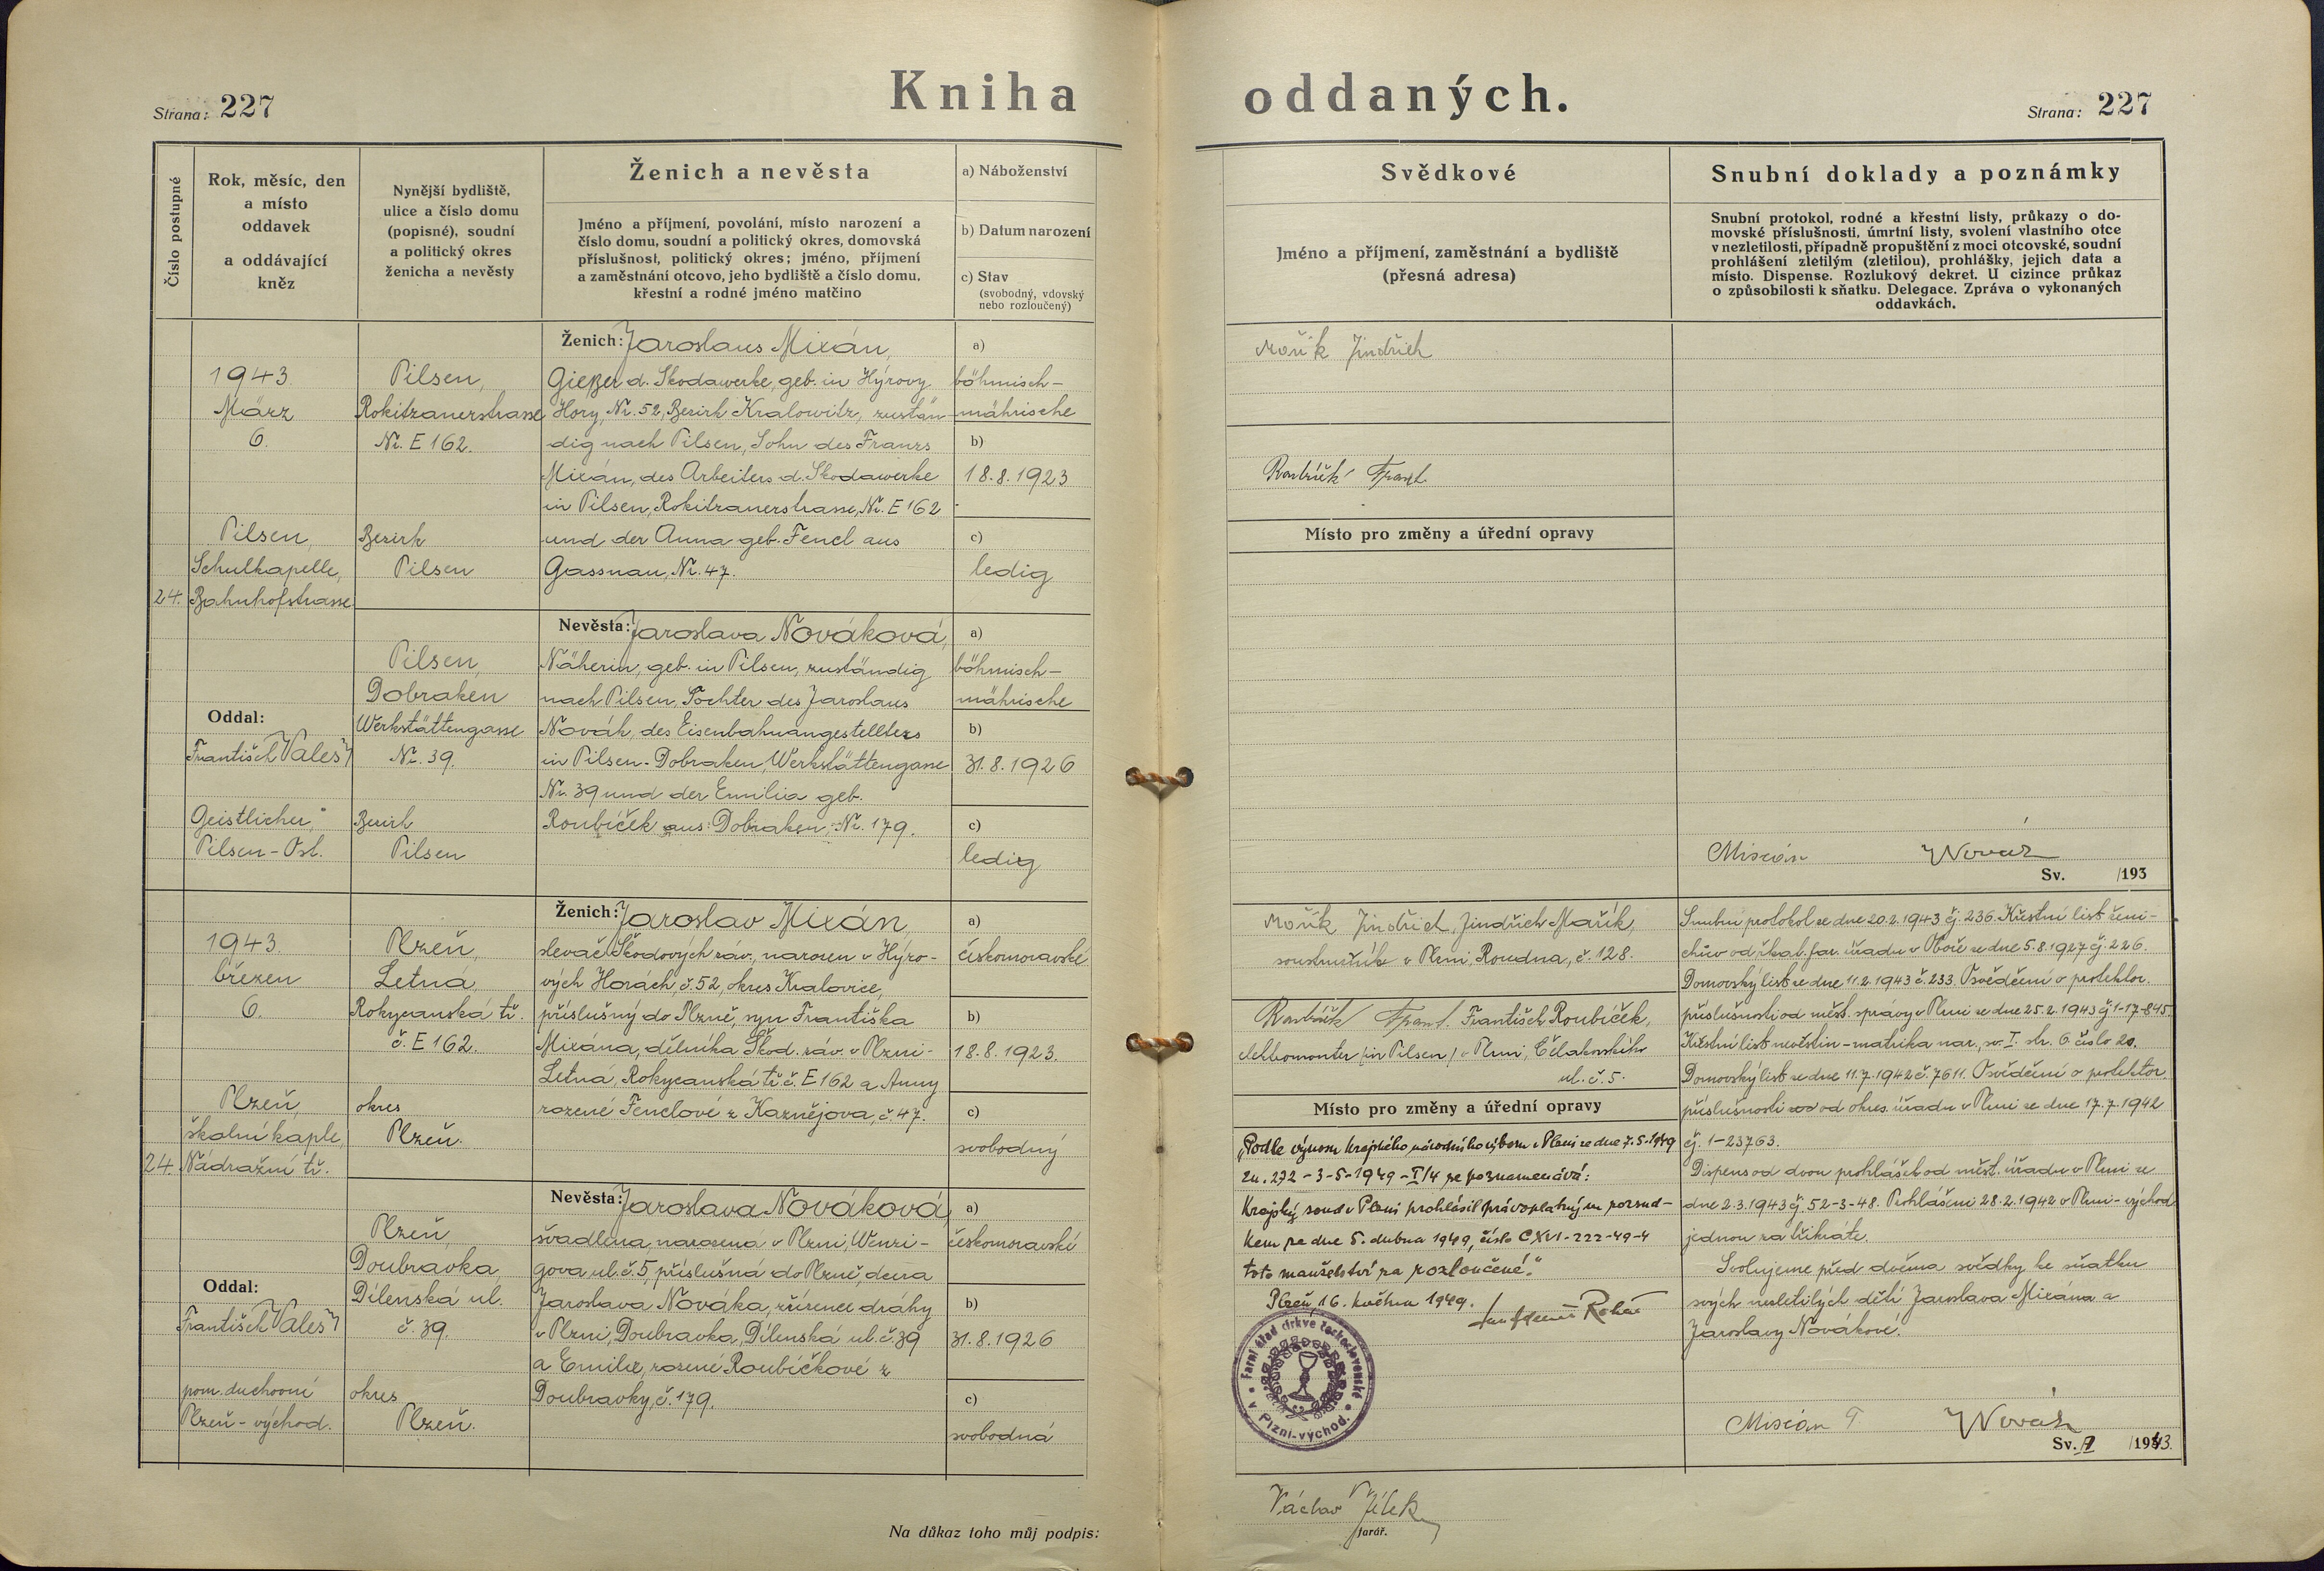 Strana: 227
Kniha oddaných.
Strana: 227
Číslo postupné
Rok, měsíc, den
a místo
oddavek
a oddávající
kněz
Nynější bydliště,
ulice a číslo domu
(popisné), soudní
a politický okres
ženicha a nevěsty
Ženich a nevěsta
Jméno a příjmení, povolání, místo narození a
číslo domu, soudní a politický okres, domovská
příslušnost, politický okres; jméno, příjmení
a zaměstnání otcovo, jeho bydliště a číslo domu,
křestní a rodné jméno matčino
a) Náboženství
b) Datum narození
c) Stav
(svobodný, vdovský
nebo rozloučený)
Svědkové
Jméno a příjmení, zaměstnání a bydliště
(přesná adresa)
Snubní doklady a poznámky
Snubní protokol, rodné a křestní listy, průkazy o do-
movské příslušnosti, úmrtní listy, svolení vlastního otce
v nezletilosti, případně propuštění z moci otcovské, soudní
prohlášení zletilým (zletilou), prohlášky, jejich data a
místo. Dispense. Rozlukový dekret. U cizince průkaz
o způsobilosti k sňatku. Delegace. Zpráva o vykonaných
oddavkách.
24.
1943.
März
6.
Pilsen,
Schulkapelle,
Bahnhofstrasse
Oddal:
František Valeš
Geistlicher,
Pilsen-Ost.
Pilsen,
Rokitzanerstrasse
Nr. E 162.
Bezirk
Pilsen
Ženich: Jaroslaus Mixán,
Gießer d. Skodawerke, geb. in Hýrovy
Hory, Nr. 52, Bezirk Kralowitz, zustän-
dig nach Pilsen, Sohn des Franzs
Mixán, des Arbeiters d. Skodawerke
in Pilsen, Rokitzanerstrasse, Nr. E 162
und der Anna geb. Fencl aus
Gassnau, Nr. 47.
a)
böhmisch-
mährische
b)
18.8.1923
c)
ledig
Pilsen,
Dobraken
Werkstättengasse
Nr. 39.
Bezirk
Pilsen
Nevěsta: Jaroslava Nováková,
Näherin, geb. in Pilsen, zuständig
nach Pilsen, Tochter des Jaroslaus
Novák, des Eisenbahnangestellters
in Pilsen-Dobraken, Werkstättengasse
Nr. 39 und der Emilia geb.
Roubíček aus Dobraken, Nr. 179.
a)
böhmisch-
mährische
b)
31.8.1926
c)
ledig
Mařík Jindřich
Roubíček Frant.
Místo pro změny a úřední opravy
Mixán Novák
Sv. /193
24.
1943.
březen
6.
Plzeň,
školní kaple,
Nádražní tř.
Oddal:
František Valeš
pom. duchovní
Plzeň-východ.
Plzeň,
Letná,
Rokycanská tř.
č. E 162.
okres
Plzeň.
Ženich: Jaroslav Mixán,
slevač Škodových záv., narozen v Hýro-
vých Horách, č. 52, okres Kralovice,
příslušný do Plzně, syn Františka
Mixána, dělníka Škod. záv. v Plzni-
Letná, Rokycanská tř. č. E 162 a Anny
rozené Fenclové z Kaznějova, č. 47.
a)
českomoravské
b)
18.8.1923.
c)
svobodný
Plzeň,
Doubravka,
Dílenská ul.
č. 39.
okres
Plzeň.
Nevěsta: Jaroslava Nováková
švadlena, narozena v Plzni, Wenzi-
gova ul. č. 5, příslušná do Plzně, dcera
Jaroslava Nováka, zřízence dráhy
v Plzni, Doubravka, Dílenská ul. č. 39
a Emilie, rozené Roubíčkové z
Doubravky, č. 179.
a)
českomoravské
b)
31.8.1926
c)
svobodná
Mařík Jindřich, Jindřich Mařík,
soustružník v Plzni, Roudna, č. 128.
Roubíček Frant. František Roubíček,
elektromontér (in Pilsen) v Plzni, Čelakovského
ul. č. 5.
Místo pro změny a úřední opravy
„Podle výnosu Krajského národního výboru v Plzni ze dne 7.5.1949
zn. 272-3-5-1949-I/4 se poznamenává:
Krajský soud v Plzni prohlásil právoplatným rozsud-
kem ze dne 5. dubna 1949, číslo CXVI-222-49-4
toto manželství za rozloučené."
Plzeň, 16. května 1949.
Farní úřad církve československé v Plzni-východ.
Snubní protokol ze dne 20.2.1943 čj. 236. Křestní list ženi-
chův od řkat. far. úřadu v Oboře ze dne 5.8.1927 čj. 226.
Domovský list ze dne 11.2.1943 č. 233. Osvědčení o protektor.
příslušnosti od měst. správy v Plzni ze dne 25.2.1943 čj 1-17-845.
Křestní list nevěstin - matrika nar., sv. I. str. 6. číslo 20.
Domovský list ze dne 11.7.1942 č. 7611. Osvědčení o protektor.
příslušnosti od okres. úřadu v Plzni ze dne 17.7.1942
čj. 1-23763.
Dispens od dvou prohlášek od měst. úřadu v Plzni ze
dne 2.3.1943 čj. 52-3-48. Prohlášeni 28.2.1942 v Plzni-východ
jednou za třikráte.
Svolujeme před dvěma svědky ke sňatku
svých nezletilých dětí Jaroslava Mixána a
Jaroslavy Novákové.
Mixán Novák
Sv. /1943.
Na důkaz toho můj podpis:
Václav Jílek
farář.